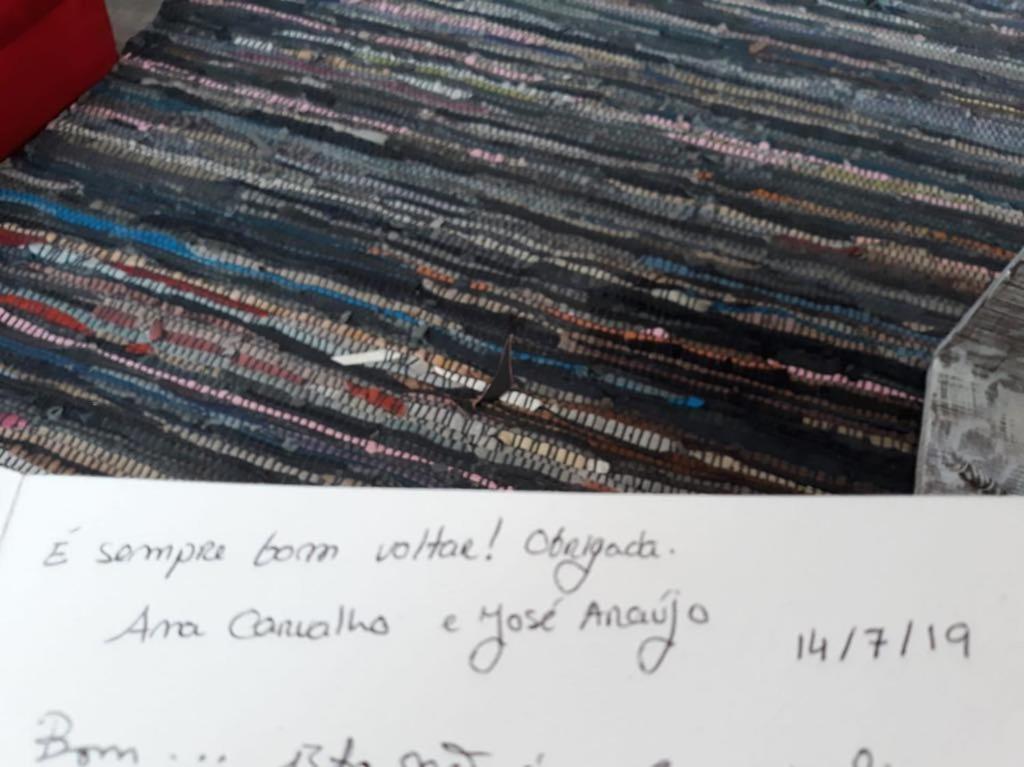 É sempre bom voltar! Obrigada.
Ana Carvalho e José Araújo
14/7/19
Bom ... isto não é